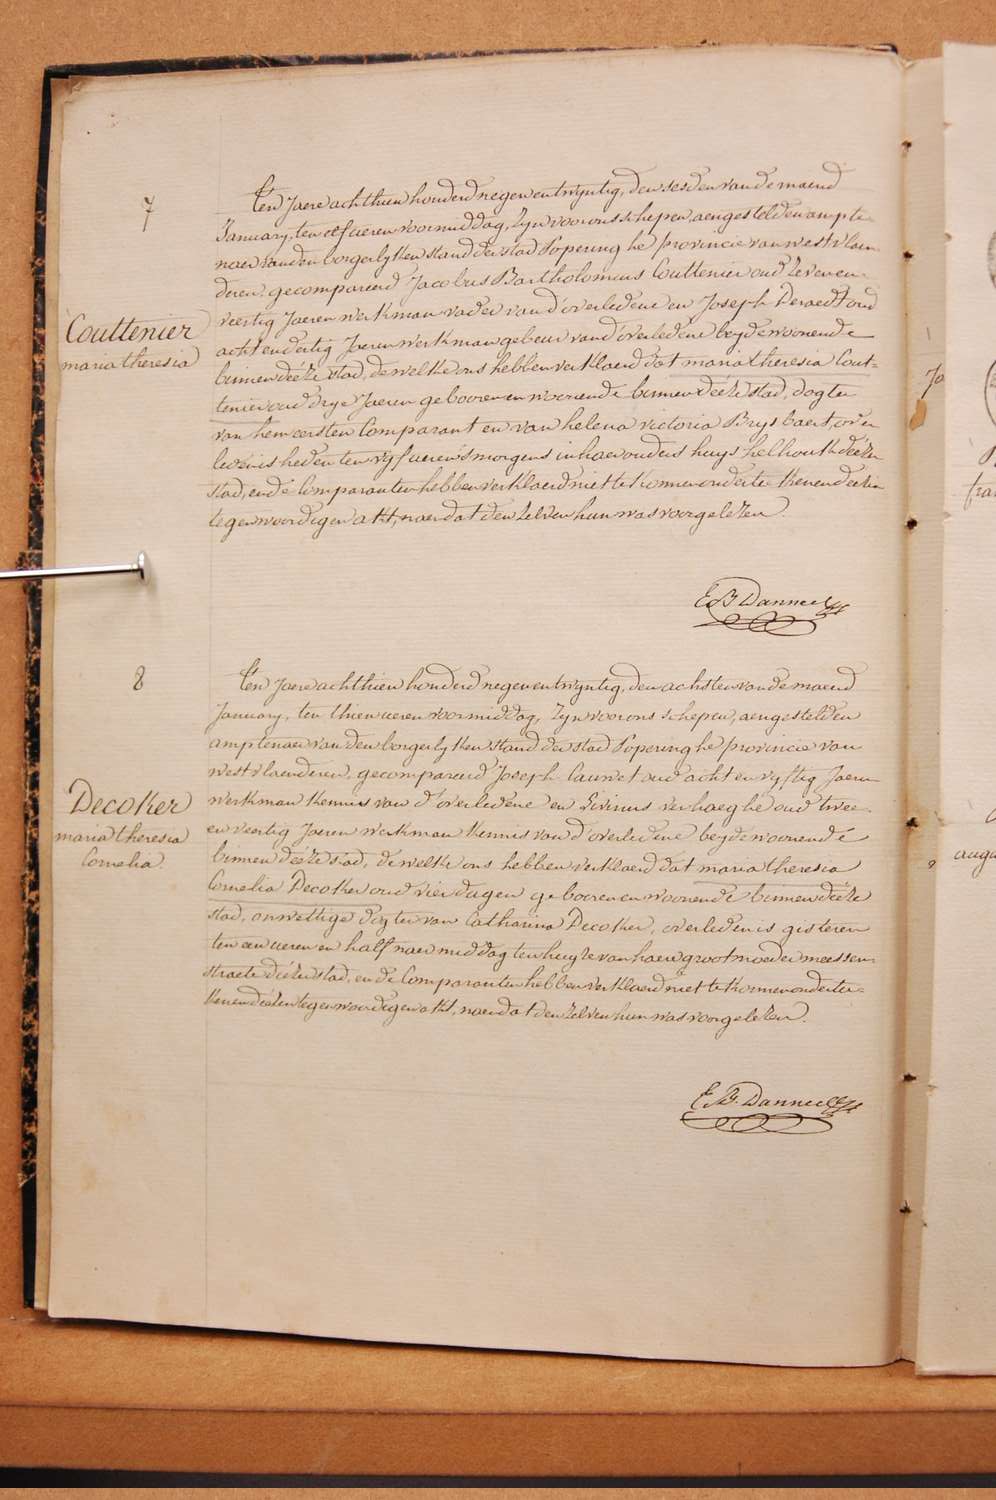 7
Couttenier
maria theresia
Ten Jaere achthien honderd negen en twyntig, den sesden van de maend
January, ten elf ueren voormiddag, zyn voor ons schepen, aengestelden ampte-
naer van den borgerlyken stand der stad Poperinghe provincie van westvlaen-
deren, gecompareerd Jacobus Bartholomeus Couttenier oud zeven en
veertig Jaeren werkman vader van d'overledene en Joseph Deraedt oud
acht en dertig Jaeren werkman gebeur van d'overledene beyde woonende
binnen dééze stad, dewelke ons hebben verklaerd dat maria theresia Cout-
tenier oud drye Jaeren gebooren en woonende binnen dééze stad, dogter
van hem eersten Comparant en van helena victoria Brysbaert, over-
leden is heden ten vyf ueren s'morgens in haer ouders huys helhoek déézer
stad, en de Comparanten hebben verklaerd niet te konnen onderteekenen deezen
tegenwoordigen akt, naer dat den zelven hun was voorgelezen.
E B Danneels
8
Decoker
maria theresia
Cornelia
Ten Jaere achthien honderd negen en twyntig, den achsten van de maend
January, ten thien ueren voormiddag, zyn voor ons schepen, aengestelden
amptenaer van den borgerlyken stand der stad Poperinghe provincie van
westvlaenderen, gecompareerd Joseph Cauwet oud acht en vyftig Jaeren
werkman kennis van d'overledene en Livinus verhaeghe oud twee
en veertig Jaeren werkman kennis van d'overledene beyde woonende
binnen dééze stad, dewelke ons hebben verklaerd dat maria theresia
Cornelia Decoker oud vier dagen gebooren en woonende binnen dééze
stad, onwettige dogter van Catharina Decoker, overleden is gisteren
ten een ueren en half naermiddag ten huyze van haere grootmoeder meessen-
straete dézer stad, en de Comparanten hebben verklaerd niet te konnen ondertee-
kenen déézen tegenwoordigen akt, naer dat den zelven hun was voorgelezen.
E. B. Danneels